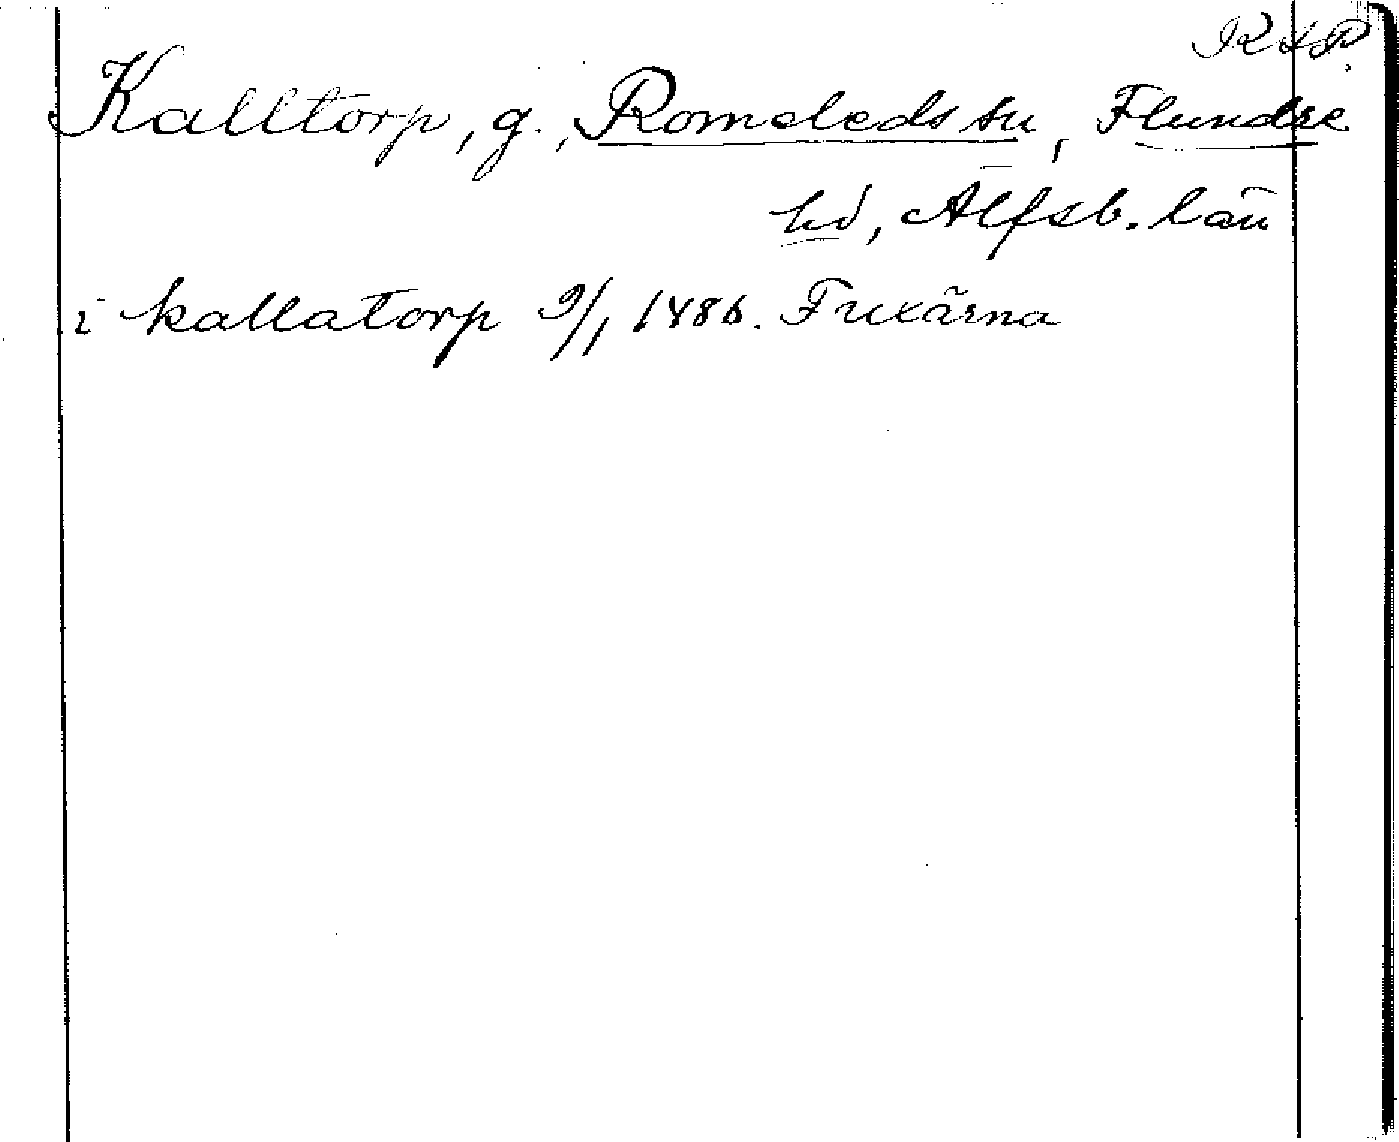 RAP.
Kalltorp, g., Romeleds sn, Flundre
hd, Älfsb. län
i kallatorp 9/1 1486. Fuxärna